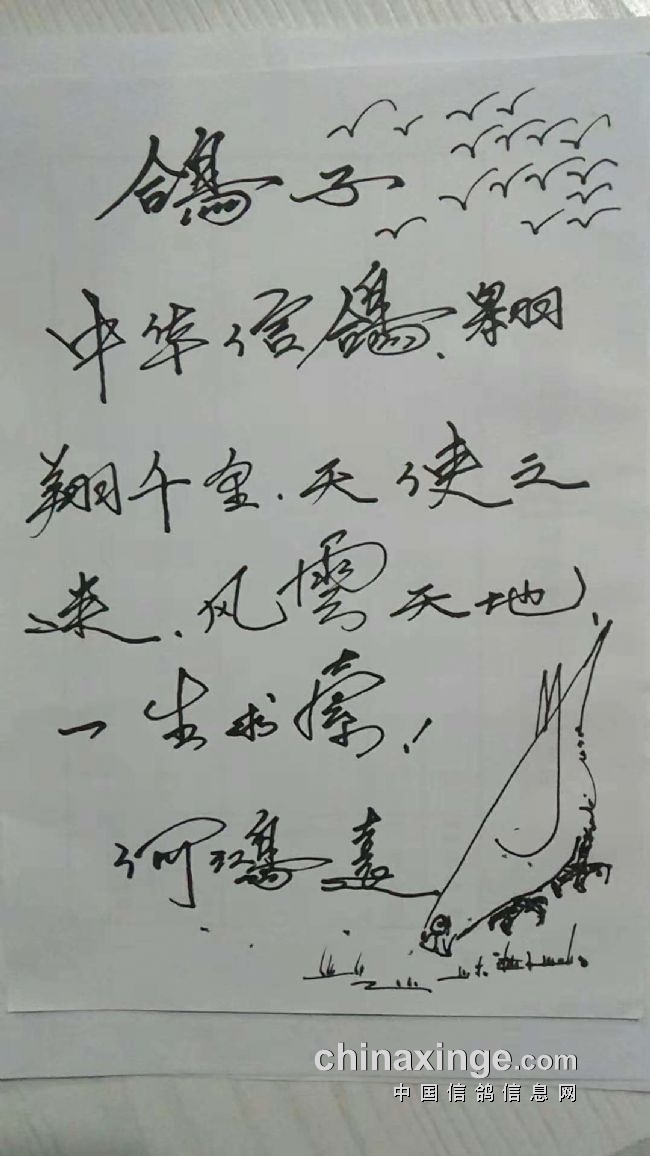 鸽子
中华信鸽、翱
翔千里、天使之
速、风雲天地，
一生求索！
何鸿
chinaxinge.com
中国信鸽信息网